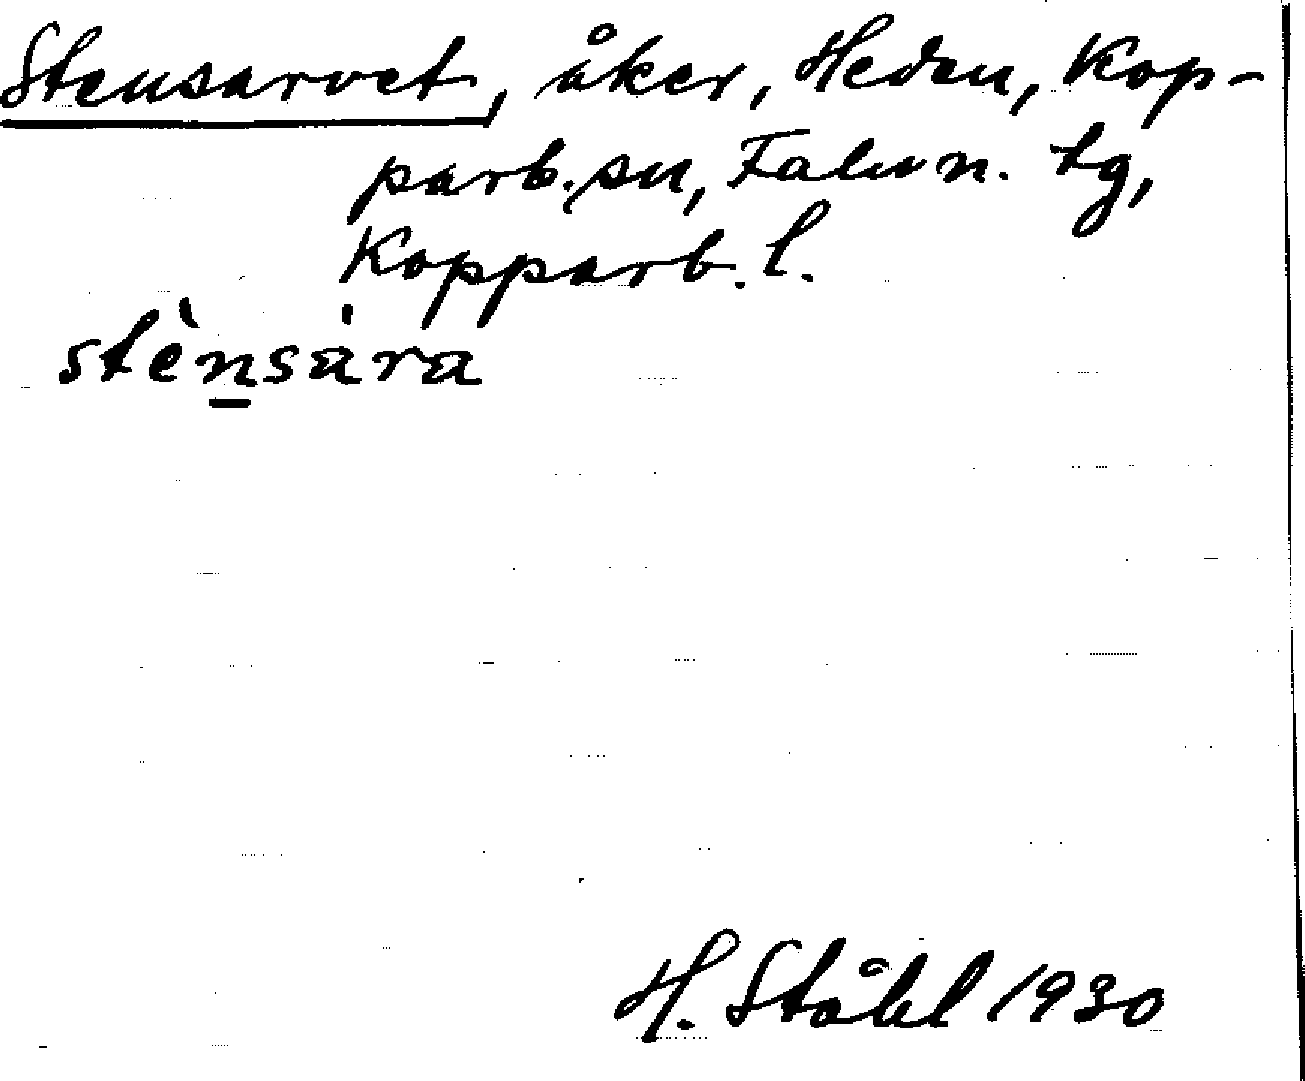 Stensarvet, åker, Heden, Kop-
parb. sn, Falun. tg,
Kopparb. l.
stènsára
H. Ståhl 1930